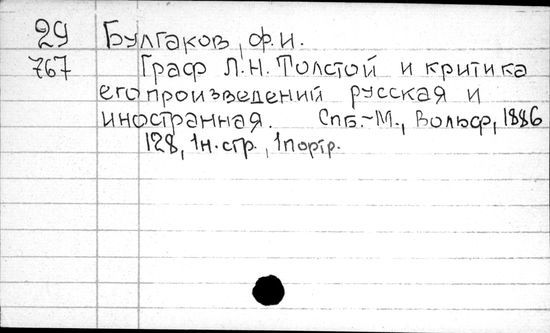 29 Булгаков, Ф.И.
767 Граф Л.Н. Толстой и критика
его произведений русская и
иностранная. Спб.-М., Вольф, 1886
128, 1н.стр., 1портр.